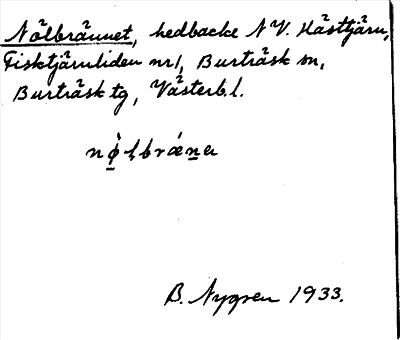 Nölbrännet, hedbacke N V. Hästtjärn,
Fisktjärnliden nr 1, Burträsk sn,
Burträsk tg, Västerb. l.
nø̀ḷbrǽna
B. Nygren 1933.